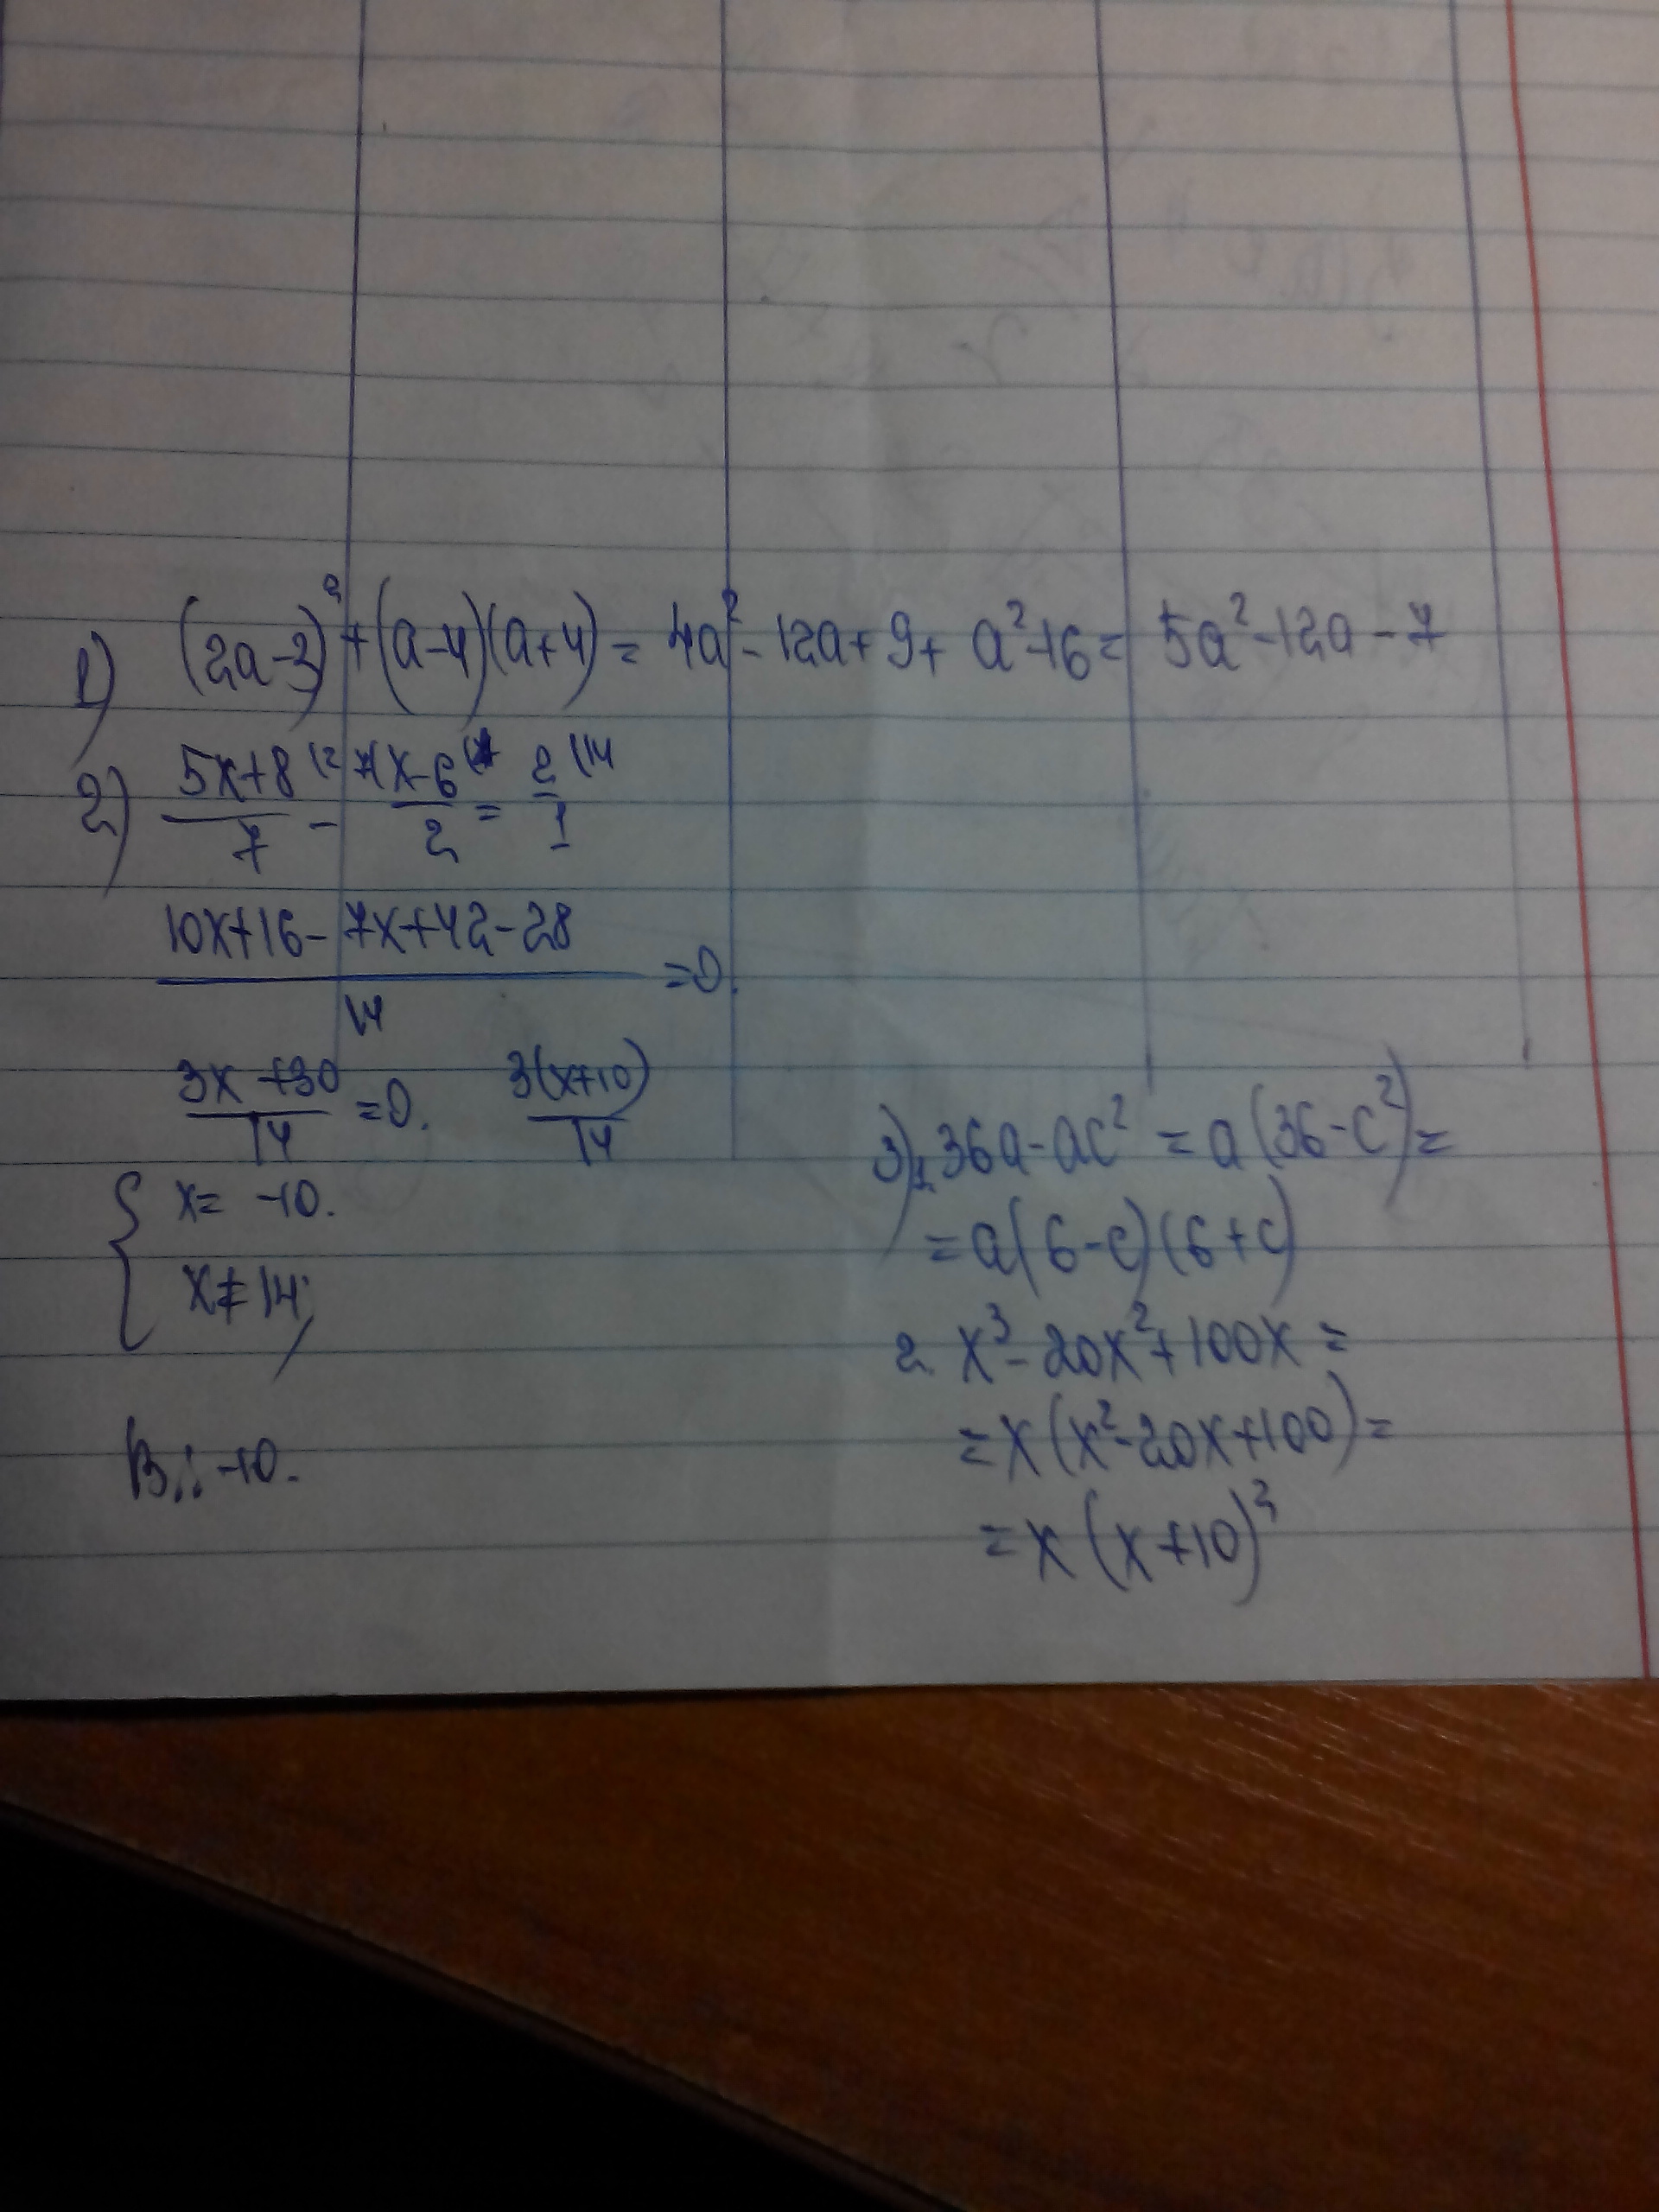 1) (2a-3)² + (a-4)(a+4) = 4a² - 12a + 9 + a² - 16 = 5a² - 12a - 7
2) 5x+8 (2 7( x-6 2 (14
7 - 2 = 1
10x+16-7x+42-28
14 = 0.
3x+30 / 14 = 0. 3(x+10) / 14
{ x = -10.
x ≠ 14;
В.: -10.
3) 1. 36a - ac² = a(36-c²) =
= a(6-c)(6+c)
2. x³ - 20x² + 100x =
= x(x² - 20x + 100) =
= x(x+10)²